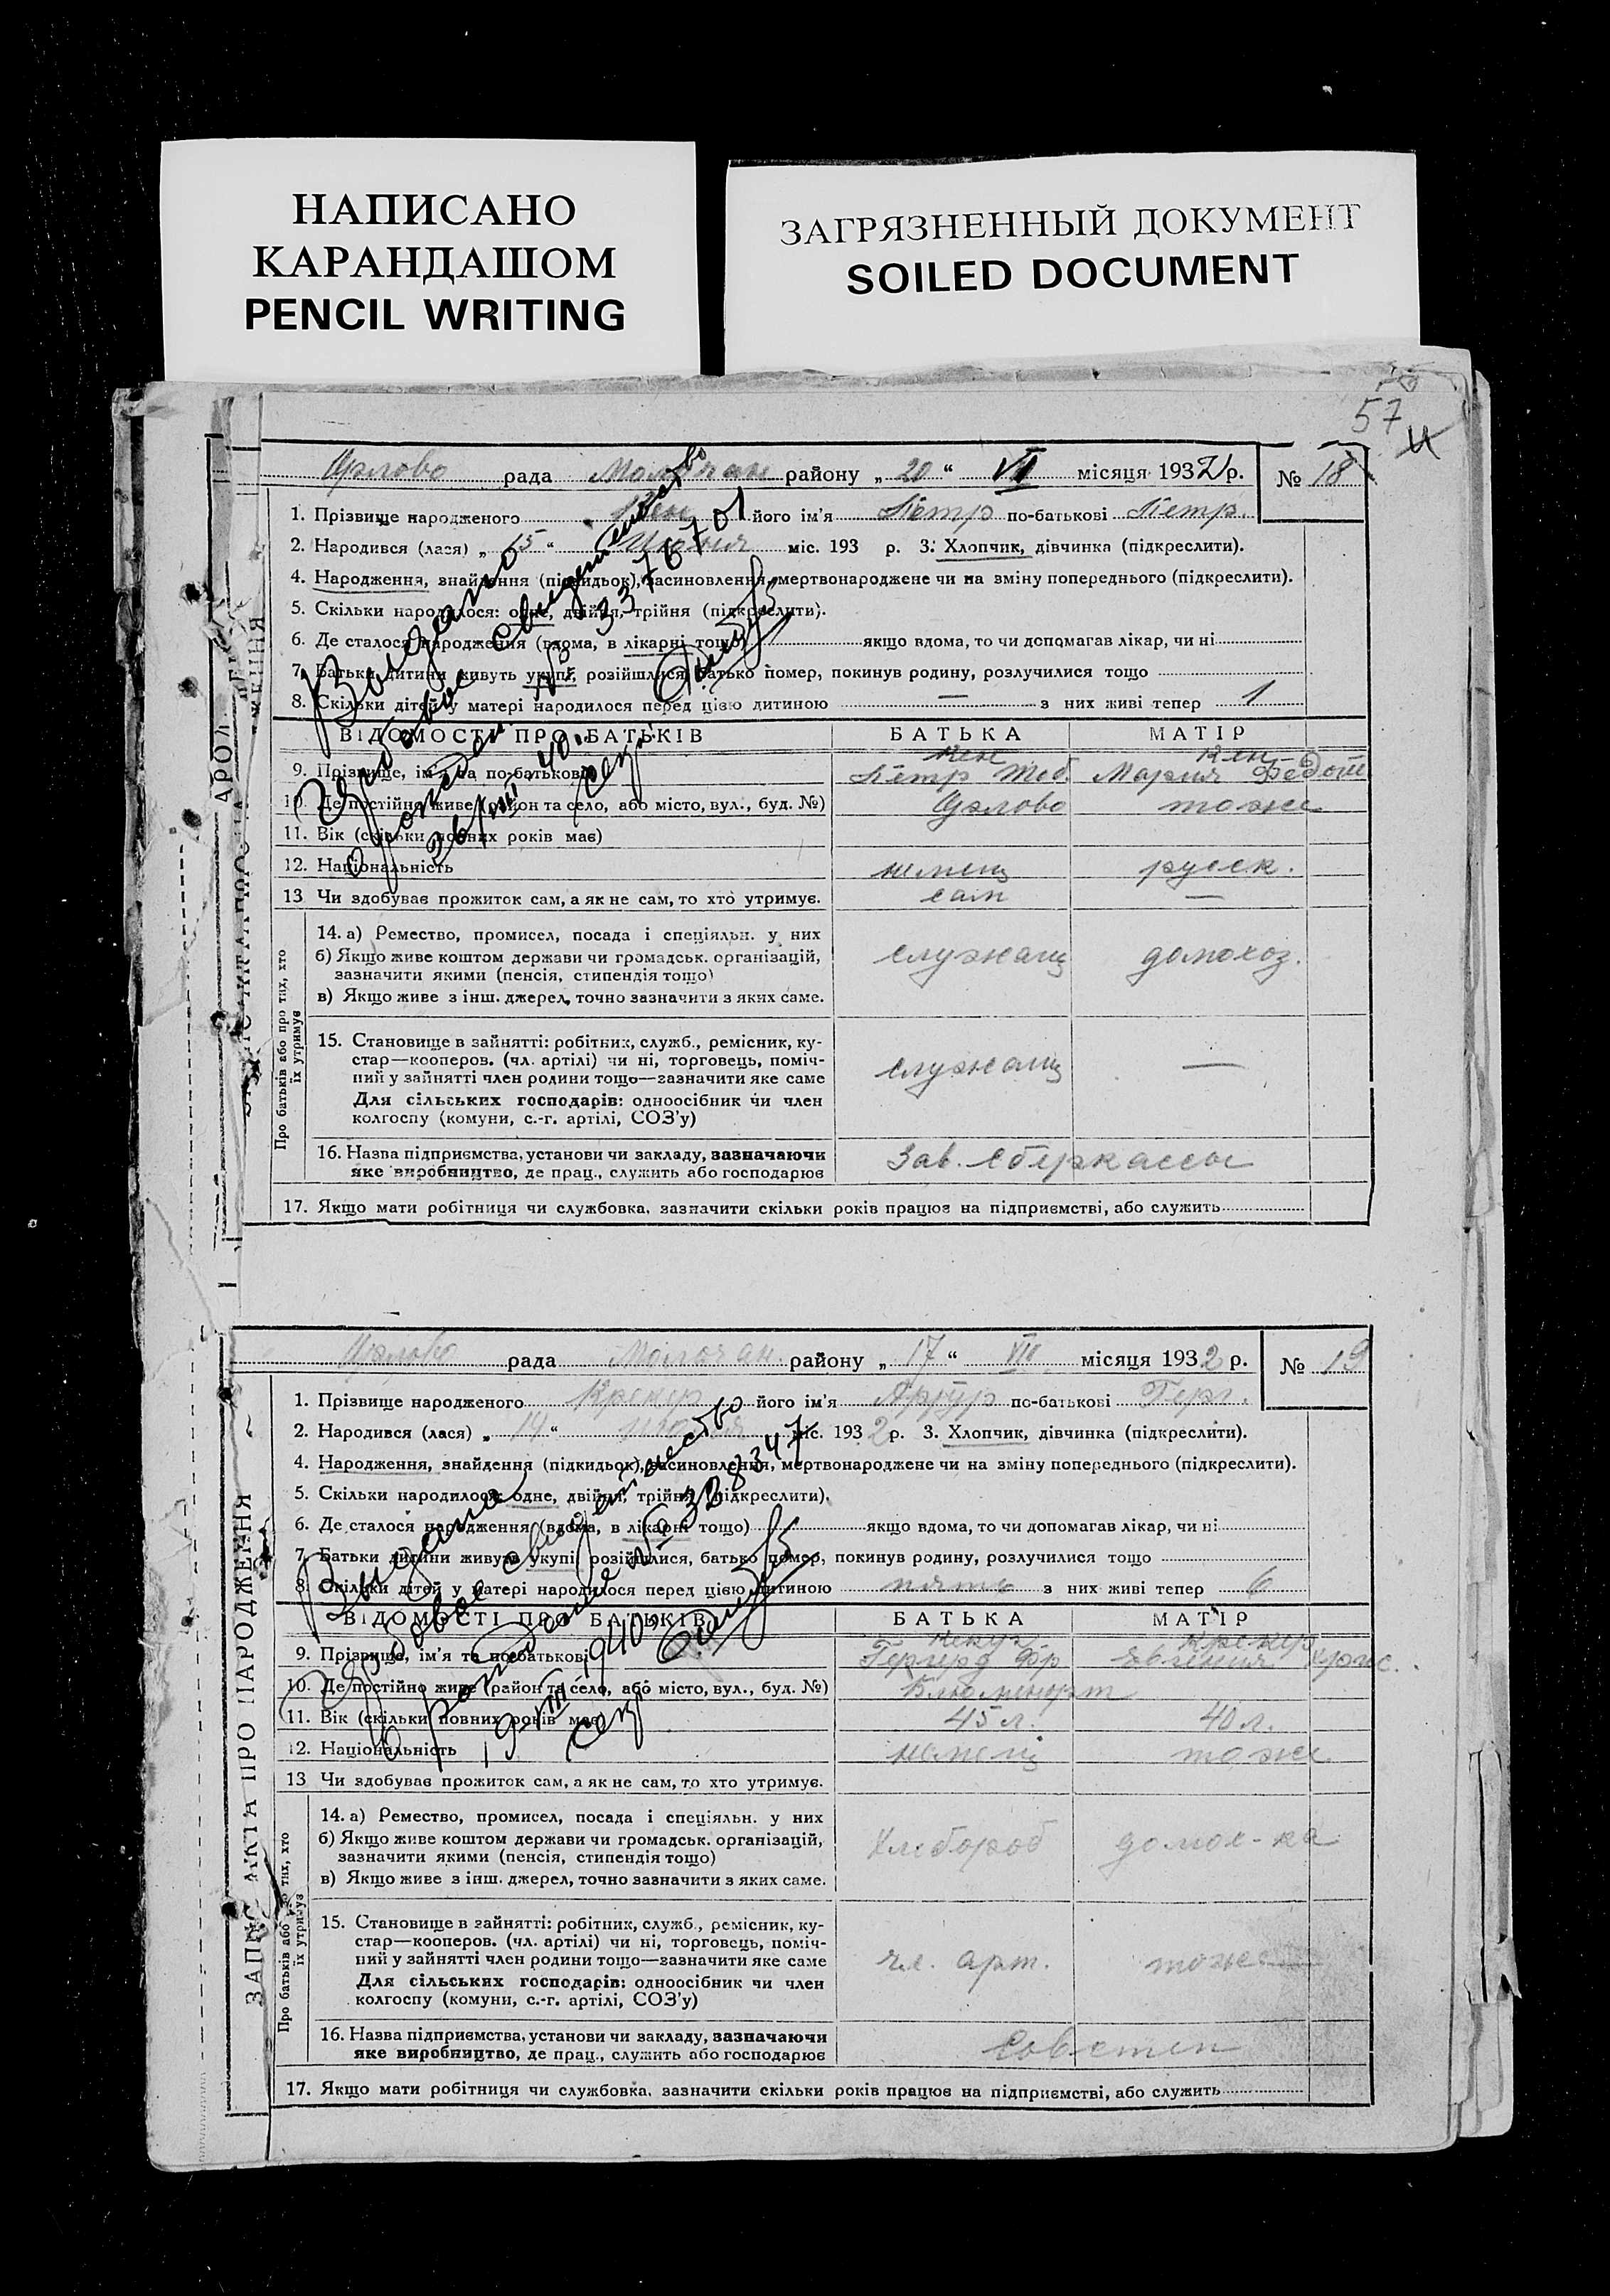 НАПИСАНО
КАРАНДАШОМ
PENCIL WRITING
ЗАГРЯЗНЕННЫЙ ДОКУМЕНТ
SOILED DOCUMENT
57
рада Молочан району „ 20 “ VII місяця 1932 р. № 18
1. Прізвище народженого його ім'я Петр по-батькові Петр.
2. Народився (лася) „ 15 “ міс. 193 р. 3. Хлопчик, дівчинка (підкреслити).
4. Народження, знайдення (підкидьок), засиновлення, мертвонароджене чи на зміну попереднього (підкреслити).
5. Скільки народилося: одне, двійня, трійня (підкреслити).
6. Де сталося народження (вдома, в лікарні тощо) якщо вдома, то чи допомагав лікар, чи ні
7. Батьки дитини живуть укупі, розійшлися, батько помер, покинув родину, розлучилися тощо
8. Скільки дітей у матері народилося перед цією дитиною — з них живі тепер 1
ВІДОМОСТІ ПРО БАТЬКІВ БАТЬКА МАТІР
9. Прізвище, ім'я та по-батькові Петр Мария
10. Де постійно живе (район та село, або місто, вул., буд. №) тоже
11. Вік (скільки повних років має)
12. Національність немец русск.
13 Чи здобуває прожиток сам, а як не сам, то хто утримує. сам —
Про батьків або про тих, хто їх утримує
14. а) Ремество, промисел, посада і спеціяльн. у них
б) Якщо живе коштом держави чи громадськ. організацій,
зазначити якими (пенсія, стипендія тощо)
служащ домохоз.
в) Якщо живе з інш. джерел, точно зазначити з яких саме.
15. Становище в зайнятті: робітник, служб., ремісник, ку-
стар—кооперов. (чл. артілі) чи ні, торговець, поміч-
ний у зайнятті член родини тощо—зазначити яке саме
служащ —
Для сільських господарів: одноосібник чи член
колгоспу (комуни, с.-г. артілі, СОЗ'у)
16. Назва підприємства, установи чи закладу, зазначаючи
яке виробництво, де прац., служить або господарює
Зав. Сберкассы
17. Якщо мати робітниця чи службовка, зазначити скільки років працює на підприємстві, або служить
Выдано
свидетельство
о рожден. № 3378701
рада Молочан. району „ 17 “ VII місяця 1932 р. № 19
1. Прізвище народженого Крекер його ім'я Артур по-батькові Герг.
2. Народився (лася) „ 14 “ міс. 1932 р. 3. Хлопчик, дівчинка (підкреслити).
4. Народження, знайдення (підкидьок), засиновлення, мертвонароджене чи на зміну попереднього (підкреслити).
5. Скільки народилося: одне, двійня, трійня (підкреслити).
6. Де сталося народження (вдома, в лікарні тощо) якщо вдома, то чи допомагав лікар, чи ні
7. Батьки дитини живуть укупі, розійшлися, батько помер, покинув родину, розлучилися тощо
8. Скільки дітей у матері народилося перед цією дитиною пять з них живі тепер 6
ВІДОМОСТІ ПРО БАТЬКІВ БАТЬКА МАТІР
Крекер
9. Прізвище, ім'я та по-батькові Гергерд Фр Евгения
10. Де постійно живе (район та село, або місто, вул., буд. №) Блюменорт
11. Вік (скільки повних років має) 45 л. 40 л.
12. Національність немец тоже
13 Чи здобуває прожиток сам, а як не сам, то хто утримує.
ЗАПИС АКТА ПРО НАРОДЖЕННЯ
Про батьків або про тих, хто їх утримує
14. а) Ремество, промисел, посада і спеціяльн. у них
б) Якщо живе коштом держави чи громадськ. організацій,
зазначити якими (пенсія, стипендія тощо)
хлебороб домох-ка
в) Якщо живе з інш. джерел, точно зазначити з яких саме.
15. Становище в зайнятті: робітник, служб., ремісник, ку-
стар—кооперов. (чл. артілі) чи ні, торговець, поміч-
ний у зайнятті член родини тощо—зазначити яке саме
чл. арт. тоже
Для сільських господарів: одноосібник чи член
колгоспу (комуни, с.-г. артілі, СОЗ'у)
16. Назва підприємства, установи чи закладу, зазначаючи
яке виробництво, де прац., служить або господарює
17. Якщо мати робітниця чи службовка, зазначити скільки років працює на підприємстві, або служить
Выдано
свидетельство
о рождение № 328347